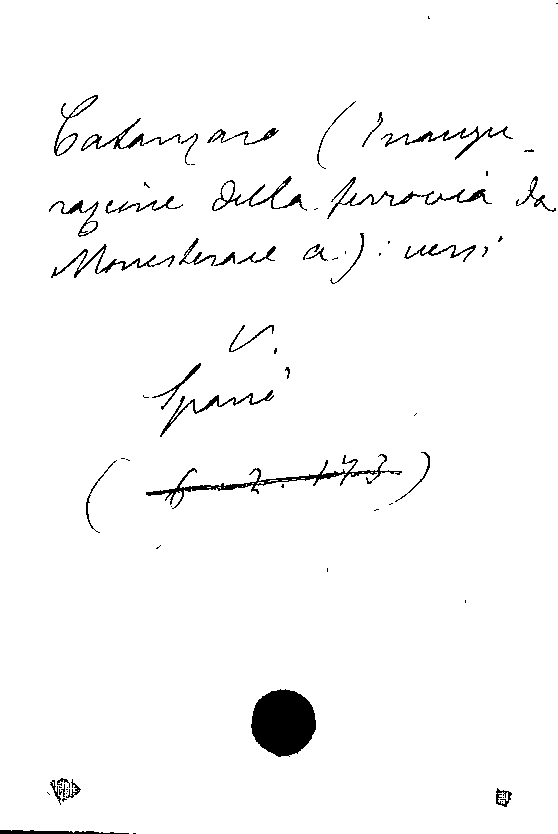 Catanzaro (inaugu-
razione della ferrovia da
Monesterace a.): versi
V.
Spanò
(6. 2. 173)